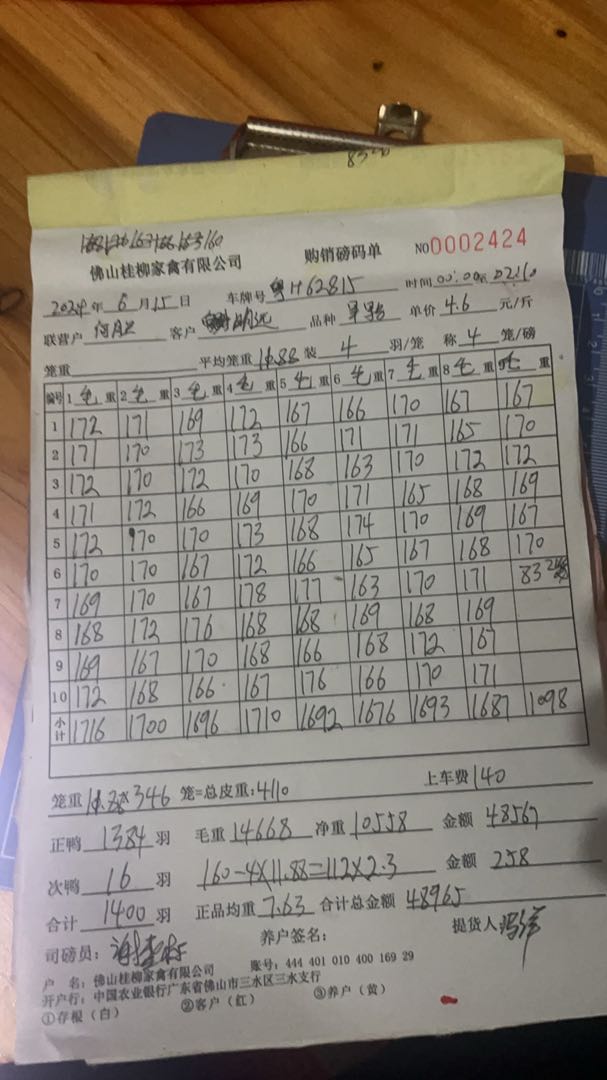 8320
168 170 167 166 163 160
佛山桂柳家禽有限公司 购销磅码单 NO0002424
2024年6月15日 车牌号 粤H62815 时间 00:00至02:10
联营户 客户 明远 品种 单价 4.6 元/斤
笼重 平均笼重 11.88 装 4 羽/笼 称 4 笼/磅
编号 1毛重 2毛重 3毛重 4毛重 5毛重 6毛重 7毛重 8毛重 毛重
1 172 171 169 172 167 166 170 167 167
2 171 170 173 173 166 171 171 165 170
3 172 170 172 170 168 163 170 172 172
4 171 172 166 169 170 171 165 168 169
5 172 170 170 173 168 174 170 169 167
6 170 170 167 172 166 165 167 168 170
7 169 170 167 178 177 163 170 171 83 2笼
8 168 172 176 168 168 169 168 169
9 169 167 170 168 166 168 172 167
10 172 168 166 167 176 166 170 171
小计 1716 1700 1696 1710 1692 1676 1693 1687 1098
笼重 11.88×346 笼=总皮重:4110 上车费 140
正鸭 1384 羽 毛重 14668 净重 10558 金额 48567
次鸭 16 羽 160-4×11.88=112×2.3 金额 258
合计 1400 羽 正品均重 7.63 合计总金额 48965
司磅员: 养户签名: 提货人
户 名: 佛山桂柳家禽有限公司 账号: 444 401 010 400 169 29
开户行: 中国农业银行广东省佛山市三水区三水支行
①存根（白） ②客户（红） ③养户（黄）